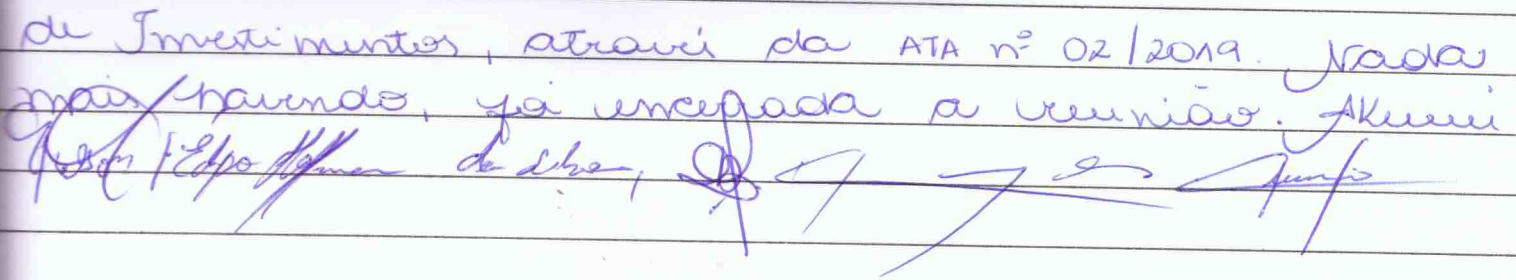 de Investimentos, através da ATA nº 02/2019. Nada
mais havendo, foi encerrada a reunião. Akemi
da Silva,